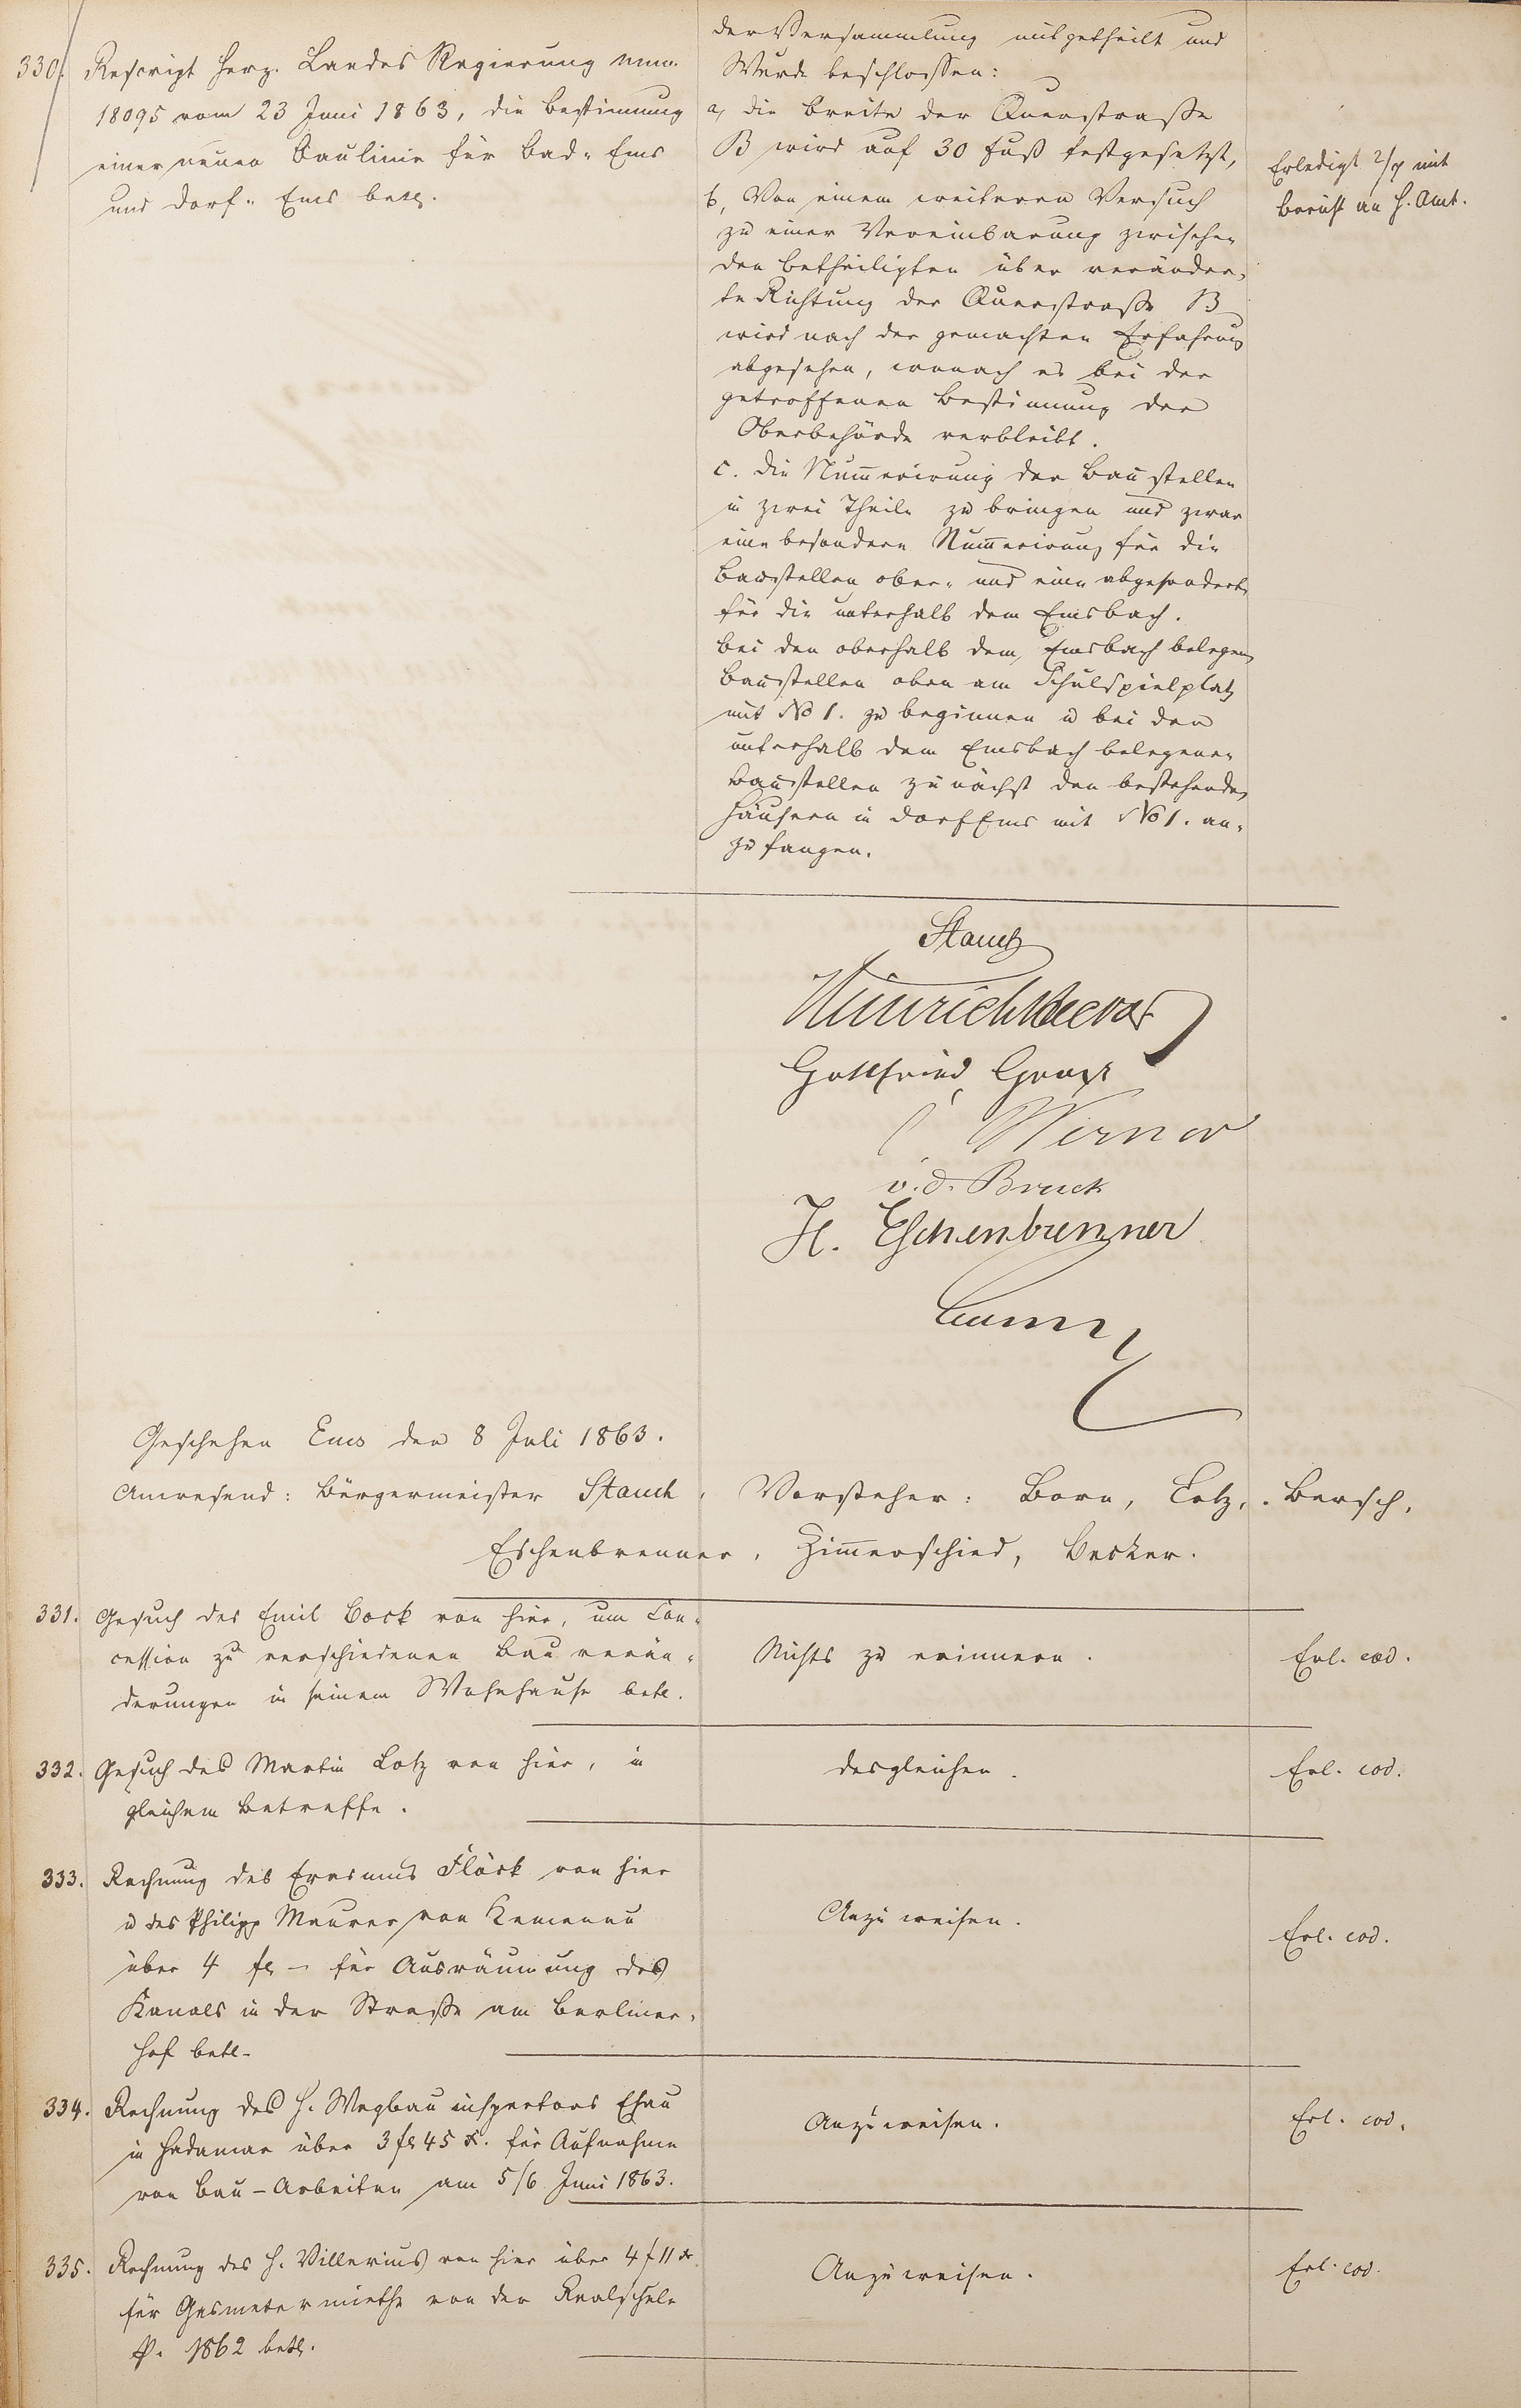 330. Rescript Herz. Landes Regierung num.
18095 vom 23 Juni 1863, die Bestimmung
einer neuen Baulinie für Bad- Ems
und Dorf- Ems betr.
der Versammlung mitgetheilt und
Wurde beschlossen:
a, die Breite der Querstraße
B wird auf 30 Fuß festgesetzt,
b, Von einem weiteren Versuch
zu einer Vereinbarung zwischen
den Betheiligten über veränder-
te Richtung der Querstraße B
wird nach der gemachten Erfahrung
abgesehen, wonach es bei der
getroffenen Bestimmung der
Oberbehörde verbleibt.
c. die Num̄erirung der Baustellen
in zwei Theile zu bringen und zwar
eine besondere Num̄erirung für die
Baustellen ober- und eine abgesonderte
für die unterhalb dem Emsbach.
Bei den oberhalb dem Emsbach belegenen
Baustellen oben am Schulspielplatz
mit No 1. zu beginnen u bei den
unterhalb dem Emsbach belegenen
Baustellen zunächst den bestehenden
Häusern in Dorf Ems mit No 1. an-
zufangen.
Erledigt 2/7 mit
Bericht an H. Amt.
Stauch
Gottfried
Werner
v. d. Bruck
H. Eschenbrenner
Geschehen Ems den 8 Juli 1863.
Anwesend: Bürgermeister Stauch, Vorsteher: Born, Lotz, Bersch,
Eschenbrenner, Zim̄erschied, Becker.
331. Gesuch des Emil Bock von hier, um Con-
cession zu verschiedenen Bauverän-
derungen in seinem Wohnhause betr.
Nichts zu erinnern.
Erl. eod.
332. Gesuch des Martin Lotz von hier, in
gleichem Betreffe.
desgleichen.
Erl. eod.
333. Rechnung des Erasmus Flöck von hier
u des Philipp Maurer von Kemenau
über 4 fl – für Ausräumung des
Kanals in der Straße am Berliner-
hof betr.
Anzuweisen.
Erl. eod.
334. Rechnung des H. Wegbauinspectors
in Hadamar über 3 fl 45 x. für Aufnahme
von Bau-Arbeiten am 5/6 Juni 1863.
Anzuweisen.
Erl. eod.
335. Rechnung des H. Villerius von hier über 4 f 11 x
für Gasmetermiethe von der Realschule
p. 1862 betr.
Anzuweisen.
Erl. eod.